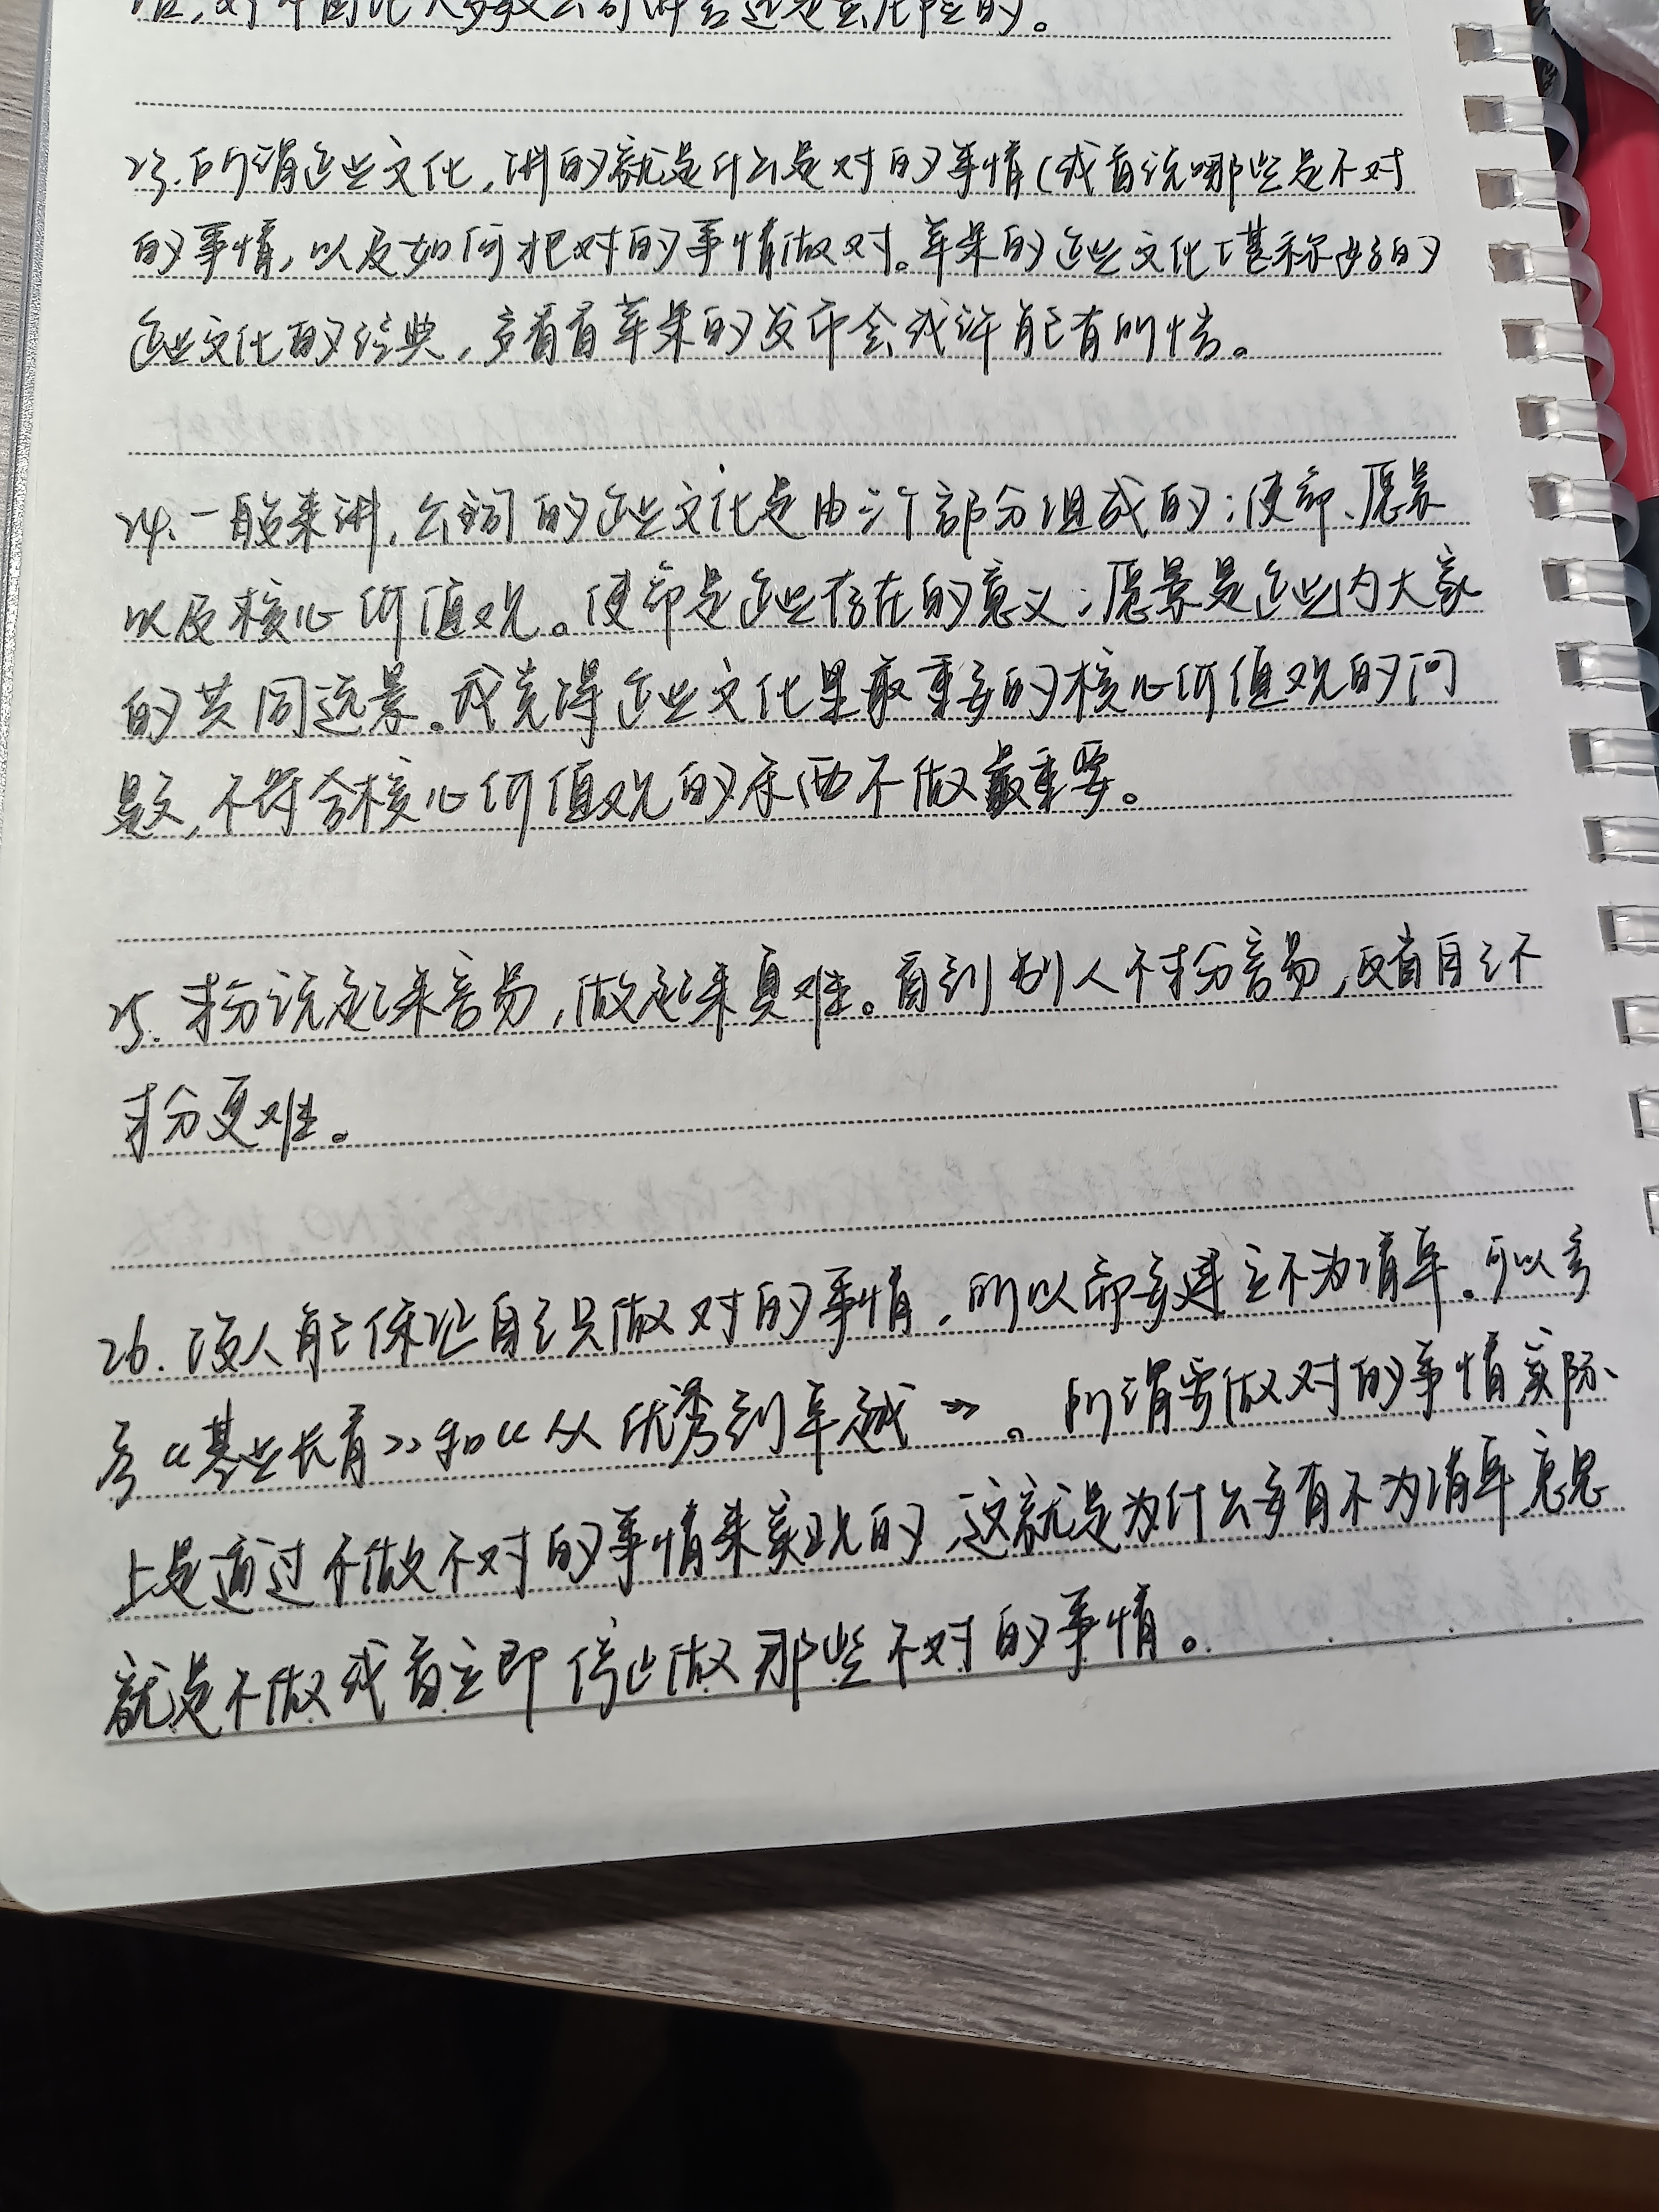 对中国绝大多数公司讲言还是类危险的。
23.所谓企业文化,讲的就是什么是对的事情(或者说哪些是不对
的事情,以及如何把对的事情做对。苹果的企业文化堪称好的
企业文化的经典,多看看苹果的发布会或许能有所悟。
24.一般来讲,公司的企业文化是由三个部分组成的:使命、愿景
以及核心价值观。使命是企业存在的意义;愿景是企业内大家
的共同远景。我觉得企业文化里最重要的核心价值观的问
题,不符合核心价值观的东西不做最重要。
25.本分说起来容易,做起来更难。看到别人不本分容易,反省自己不
本分更难。
26.没人能保证自己只做对的事情,所以都要建立不为清单。可以参
考《基业长青》和《从优秀到卓越》。所谓要做对的事情实际
上是通过不做不对的事情来实现的,这就是为什么要有不为清单,意思
就是不做或者立即停止做那些不对的事情。